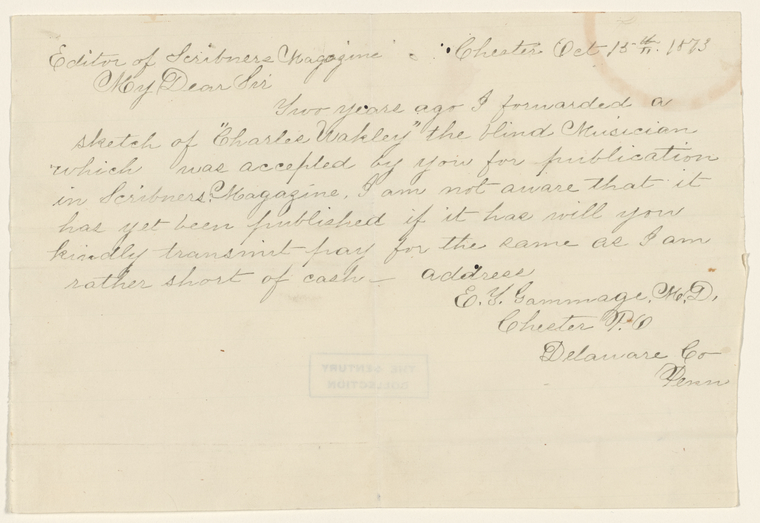 Editor of Scribners Magazine Chester Oct 15th. 1873
My Dear Sir
Two years ago I forwarded a
sketch of "Charles Wakley" the blind Musician
which was accepted by you for publication
in Scribners Magazine. I am not aware that it
has yet been published if it has will you
kindly transmit pay for the same as I am
rather short of cash – address
E. Y. Gammage. M.D.
Chester P.O
Delaware Co
Penn
THE CENTURY
COLLECTION